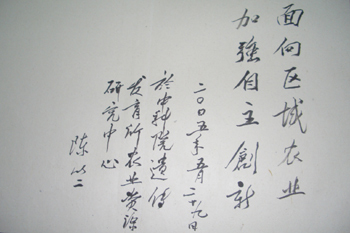 面向区域农业
加强自主創新
二〇〇五年五月二十九日
於中科院遗传
发育所农业资源
研究中心
陈以二